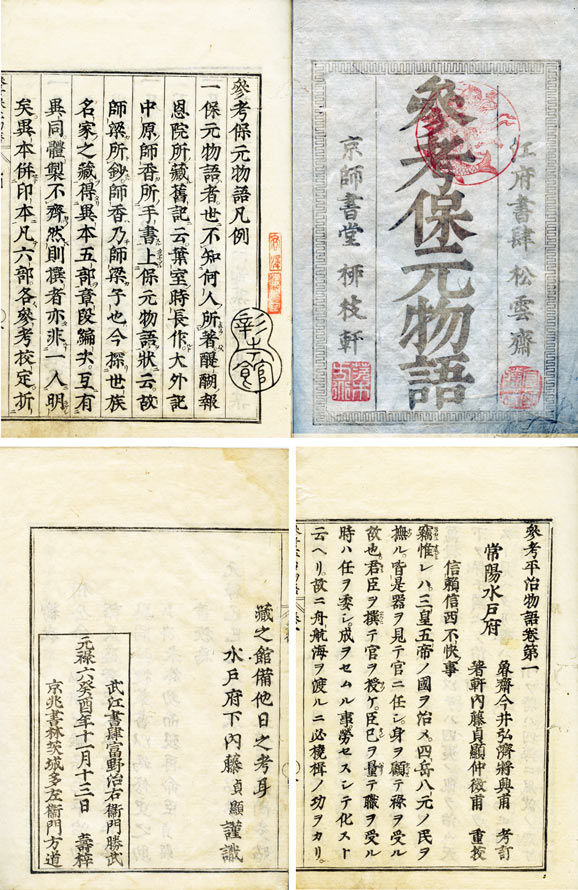 江府書肆 松雲齋
參考保元物語
京師書堂 柳枝軒
參考保元物語凡例
一保元物語者世不知何人所著醍醐報
恩院所藏舊記云葉室時長作大外記
中原師香所手書上保元物語狀云故
師梁所鈔師香乃師梁子也今探世族
名家之藏得異本五部章段編次互有
異同體製不齊然則撰者亦非一人明
矣異本併印本凡六部各參考校定折
彰考館
參考平治物語卷第一
常陽水戶府
魯齋今井弘濟將興甫 考訂
箸軒內藤貞顯仲徵甫 重校
信賴信西不快事
竊惟レハ三皇五帝ノ國ヲ治メ四岳八元ノ民ヲ
撫ル皆是器ヲ見テ官ニ任シ身ヲ顧テ祿ヲ受ル
故也君臣ヲ撰テ官ヲ授ケ臣已ヲ量テ職ヲ受ル
時ハ任ヲ委シ成ヲセムル事勞セスシテ化スト
云ヘリ故ニ舟航海ヲ渡ルニ必橈楫ノ功ヲカリ
藏之館備他日之考身
水戶府下內藤貞顯謹識
武江書肆富野治右衞門勝武
元祿六癸酉年十一月十三日 壽梓
京兆書林茨城多左衞門方道